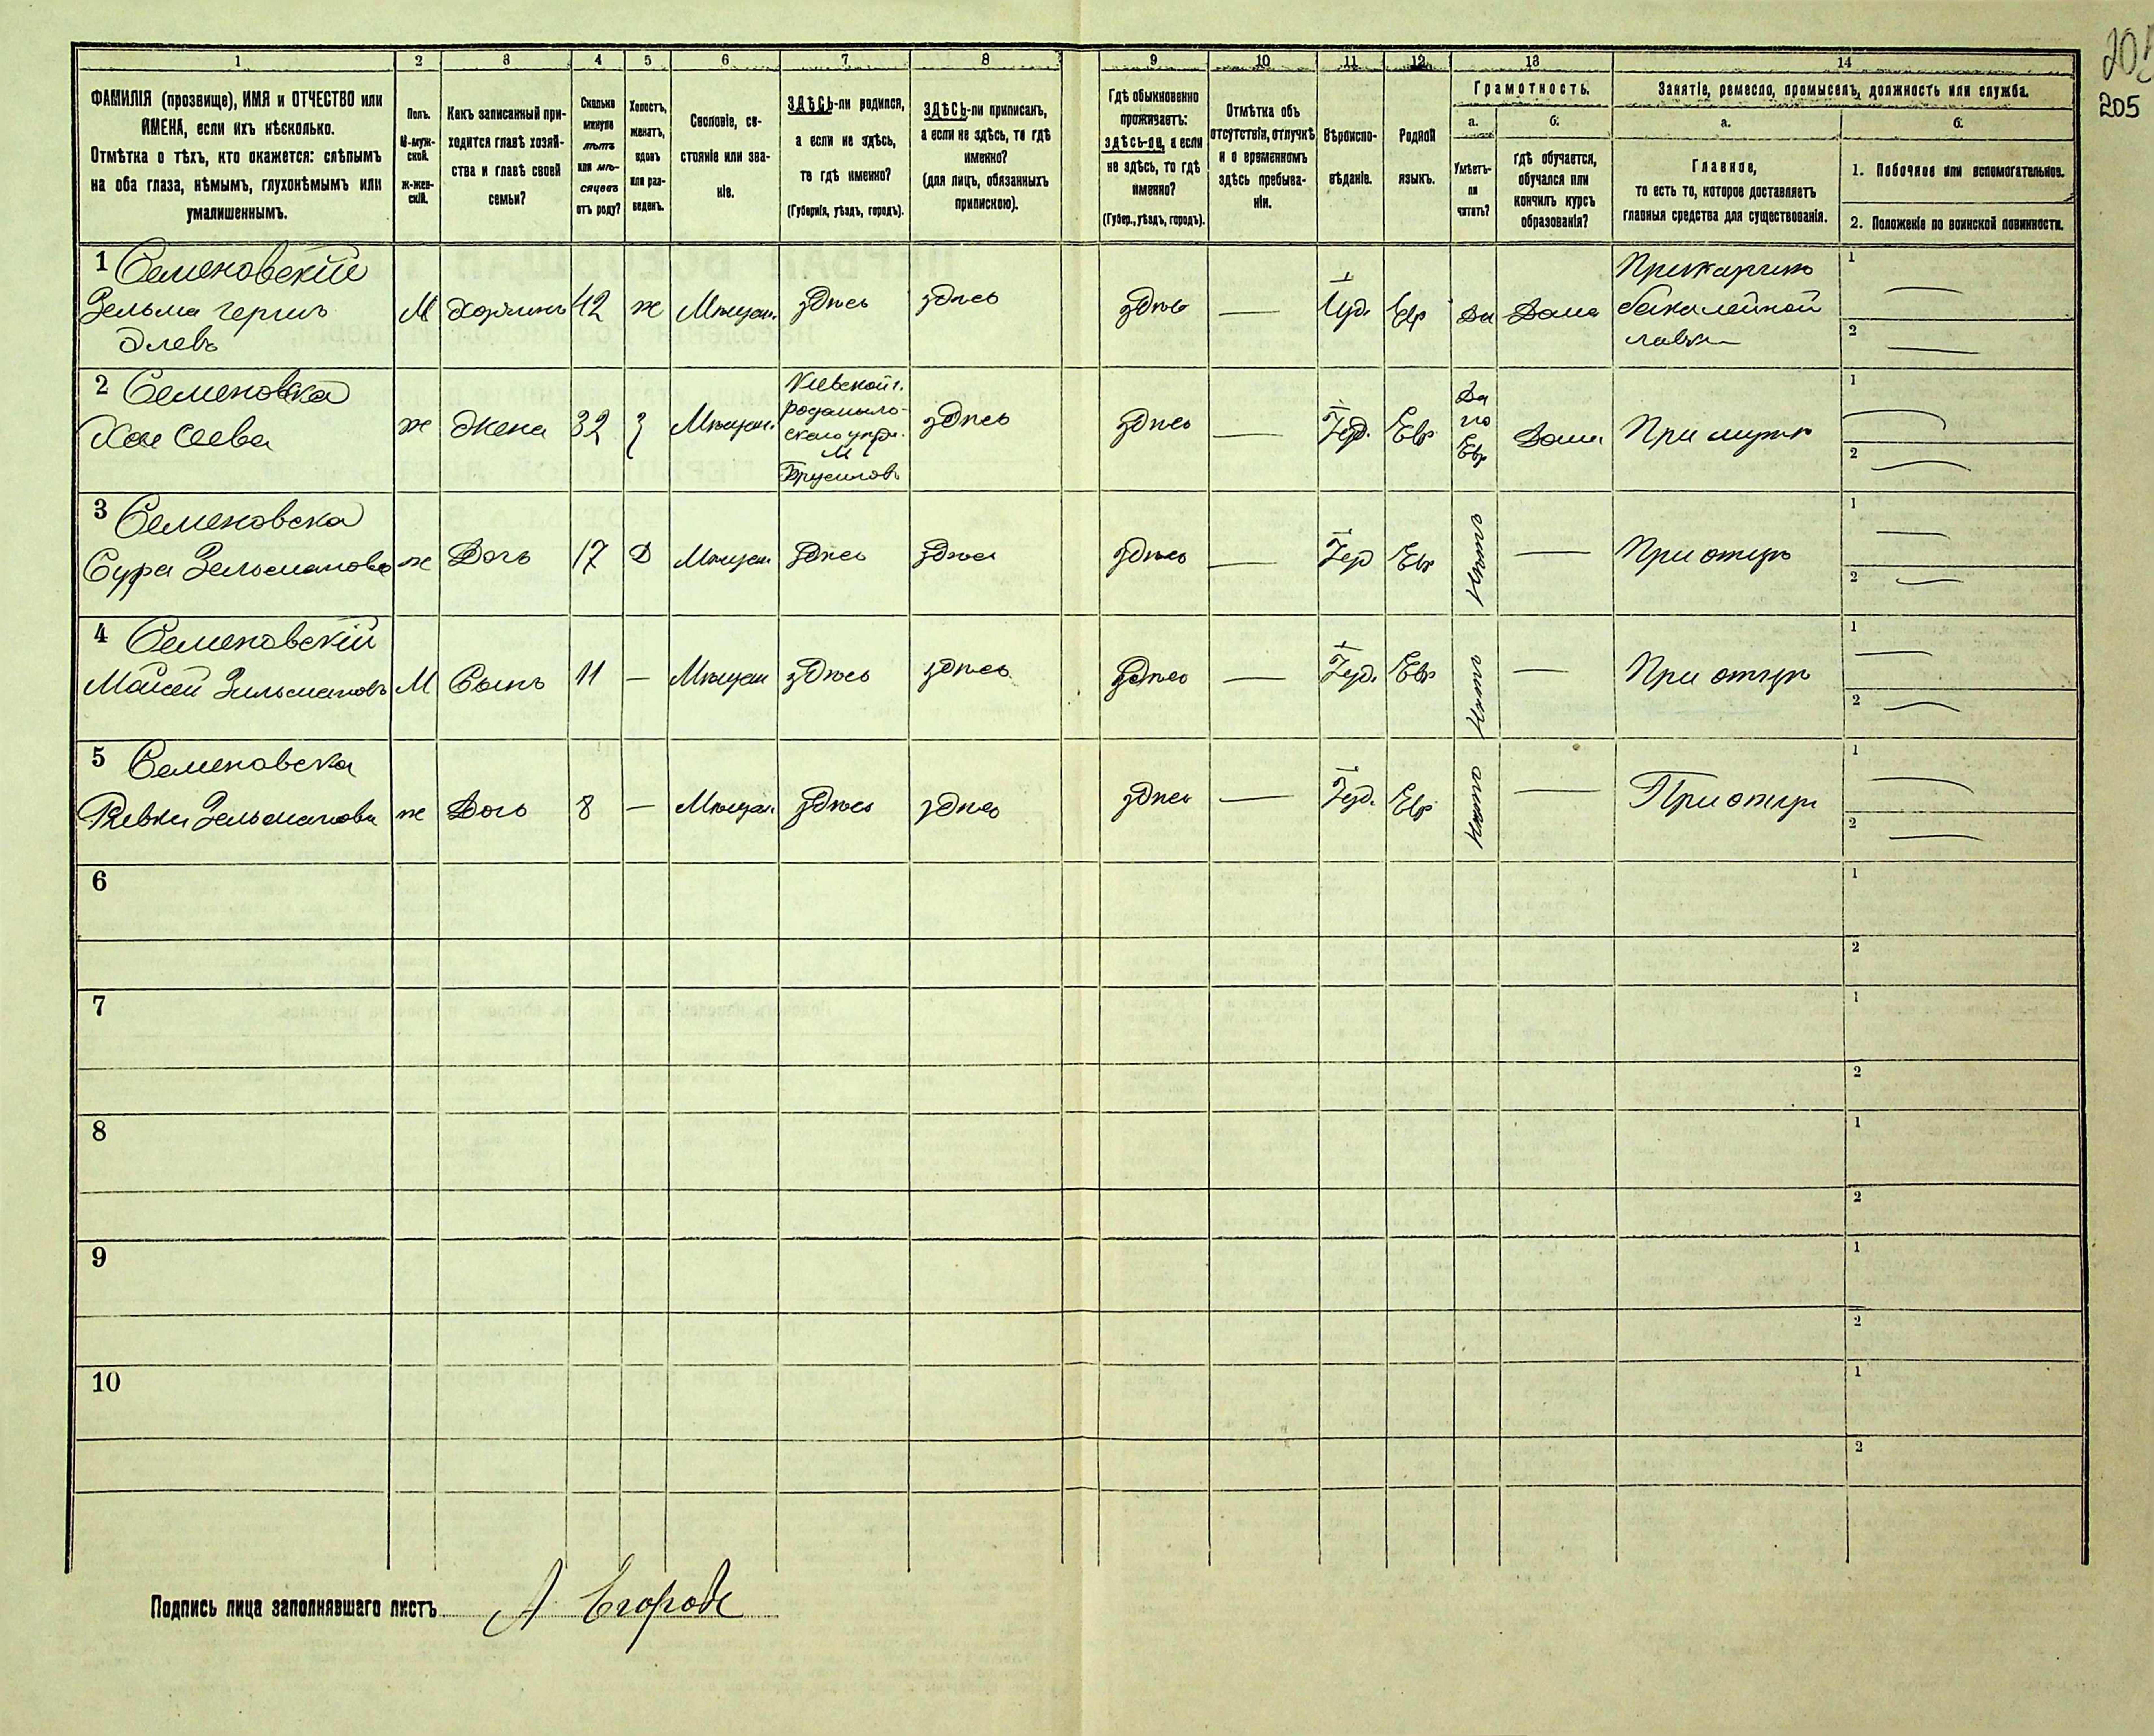 205
1 2 3 4 5 6 7 8 9 10 11 12 13 14
ФАМИЛІЯ (прозвище), ИМЯ и ОТЧЕСТВО или
ИМЕНА, если ихъ нѣсколько.
Отмѣтка о тѣхъ, кто окажется: слѣпымъ
на оба глаза, нѣмымъ, глухонѣмымъ или
умалишеннымъ.
Полъ.
М-муж-
ской.
Ж-жен-
скій.
Какъ записанный при-
ходится главѣ хозяй-
ства и главѣ своей
семьи?
Сколько
минуло
лѣтъ
или мѣ-
сяцевъ
отъ роду?
Холостъ,
женатъ,
вдовъ
или раз-
веденъ.
Сословіе, со-
стояніе или зва-
ніе.
ЗДѢСЬ-ли родился,
а если не здѣсь,
то гдѣ именно?
(Губернія, уѣздъ, городъ).
ЗДѢСЬ-ли приписанъ,
а если не здѣсь, то гдѣ
именно?
(для лицъ, обязанныхъ
припискою).
Гдѣ обыкновенно
проживаетъ:
здѣсь-ли, а если
не здѣсь, то гдѣ
именно?
(Губер., уѣздъ, городъ).
Отмѣтка объ
отсутствіи, отлучкѣ
и о временномъ
здѣсь пребыва-
ніи.
Вѣроиспо-
вѣданіе.
Родной
языкъ.
Грамотность.
а.
Умѣетъ-
ли
читать?
б.
гдѣ обучается,
обучался или
кончилъ курсъ
образованія?
Занятіе, ремесло, промыселъ, должность или служба.
а.
Главное,
то есть то, которое доставляетъ
главныя средства для существованія.
б.
1. Побочное или вспомогательное.
2. Положеніе по воинской повинности.
1 Семеновскій
Зельма Герш
Элевъ
М Хозяинъ 42 ж Мѣщан. здѣсь здѣсь здѣсь — Іуд. Евр Да Дома
Прикащикъ
бакалейной
лавки
1 —
2 —
2 Семеновска
Хая
ж Жена 32 З Мѣщан.
Кіевской г.
Радомысль-
скаго уѣзд.
М
Брусиловъ
здѣсь здѣсь — Іуд. Евр
Да
по
Евр
Дома При мужѣ
1 —
2 —
3 Семеновска
Сура Зельманова ж Дочь 17 Д Мѣщан здѣсь здѣсь здѣсь — Іуд Евр Нѣтъ — При отцѣ
1 —
2 —
4 Семеновскій
Мойсей Зельмановъ М Сынъ 11 — Мѣщан здѣсь здѣсь здѣсь — Іуд. Евр Нѣтъ — При отцѣ
1 —
2 —
5 Семеновска
Ривка Зельманова ж Дочь 8 — Мѣщан здѣсь здѣсь здѣсь — Іуд. Евр Нѣтъ — При отцѣ
1 —
2 —
6 1
2
7 1
2
8 1
2
9 1
2
10 1
2
Подпись лица заполнявшаго листъ А